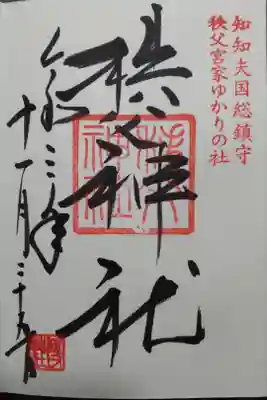 知知夫国総鎮守
秩父宮家ゆかりの社
秩父神社
令和三年
十一月二十五日
秩父
神社